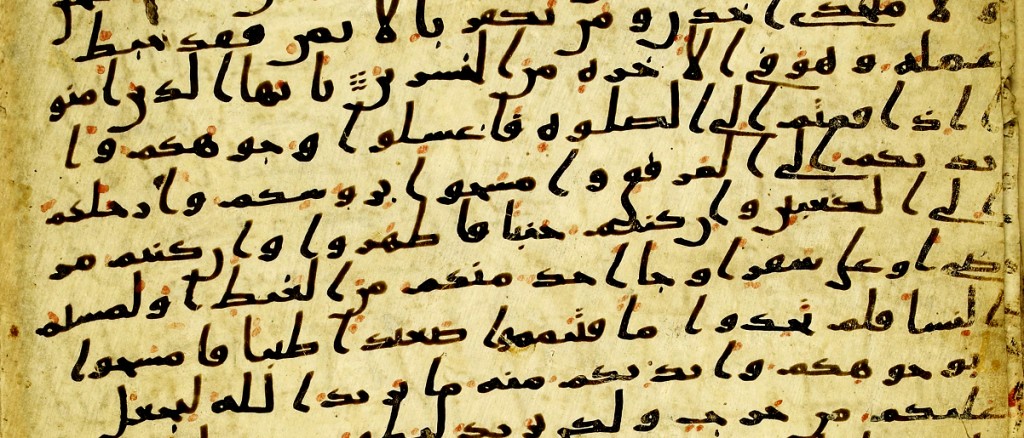 ولا متخذي اخدن ومن يكفر بالايمن فقد حبط
عمله وهو في الاخره من الخسرين يايها الذين امنو
ا اذا قمتم الى الصلوه فاغسلوا وجوهكم وا
يديكم الى المرفق وامسحوا بروسكم وارجلكم
الى الكعبين وان كنتم جنبا فاطهروا وان كنتم مر
ضى او على سفر او جا احد منكم من الغيط او لمستم
النسا فلم تجدوا ما فتيمموا صعيدا طيبا فامسحوا
بوجوهكم وايديكم منه ما يريد الله ليجعل
عليكم من حرج ولكن يريد